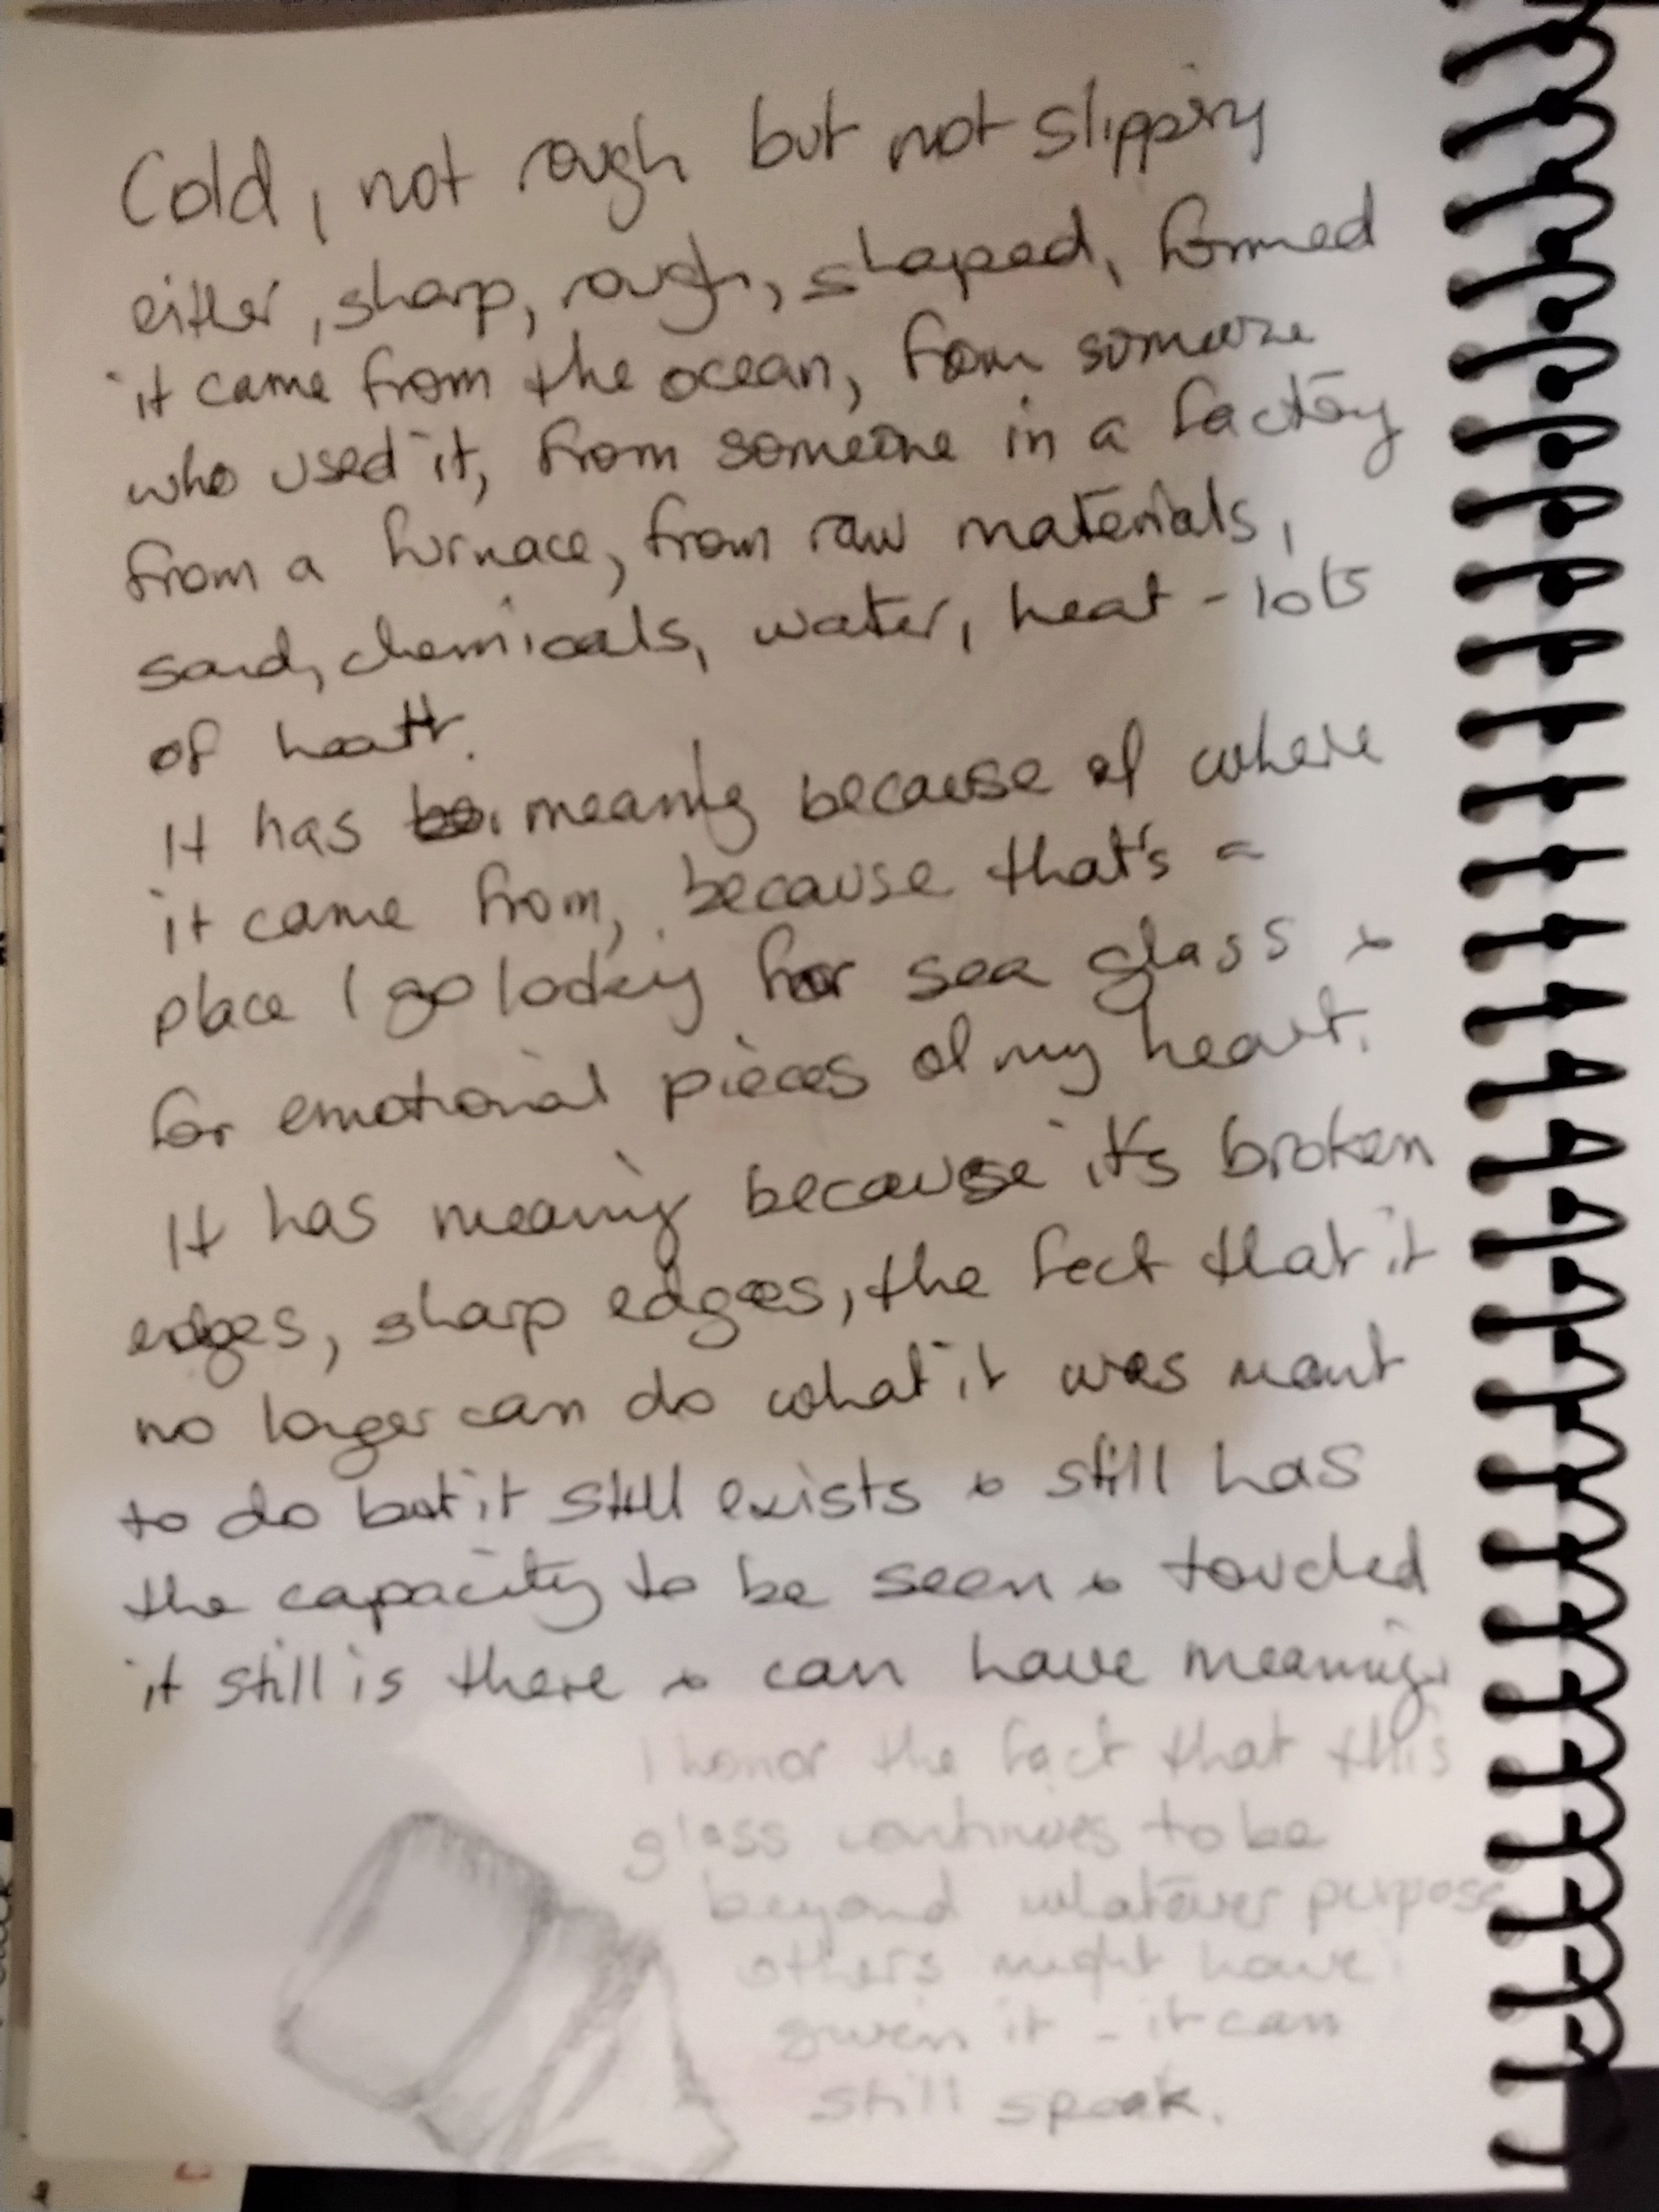 Cold, not rough but not slippery
either, sharp, rough, shaped, formed
it came from the ocean, from someone
who used it, from someone in a factory
from a furnace, from raw materials,
sand, chemicals, water, heat - lots
of heat.
It has meaning because of where
it came from, because that's a
place I go looking for sea glass &
for emotional pieces of my heart.
It has meaning because it's broken
edges, sharp edges, the fact that it
no longer can do what it was meant
to do but it still exists & still has
the capacity to be seen & touched
it still is there & can have meaning.
I honor the fact that this
glass continues to be
beyond whatever purpose
others might have
given it - it can
still speak.